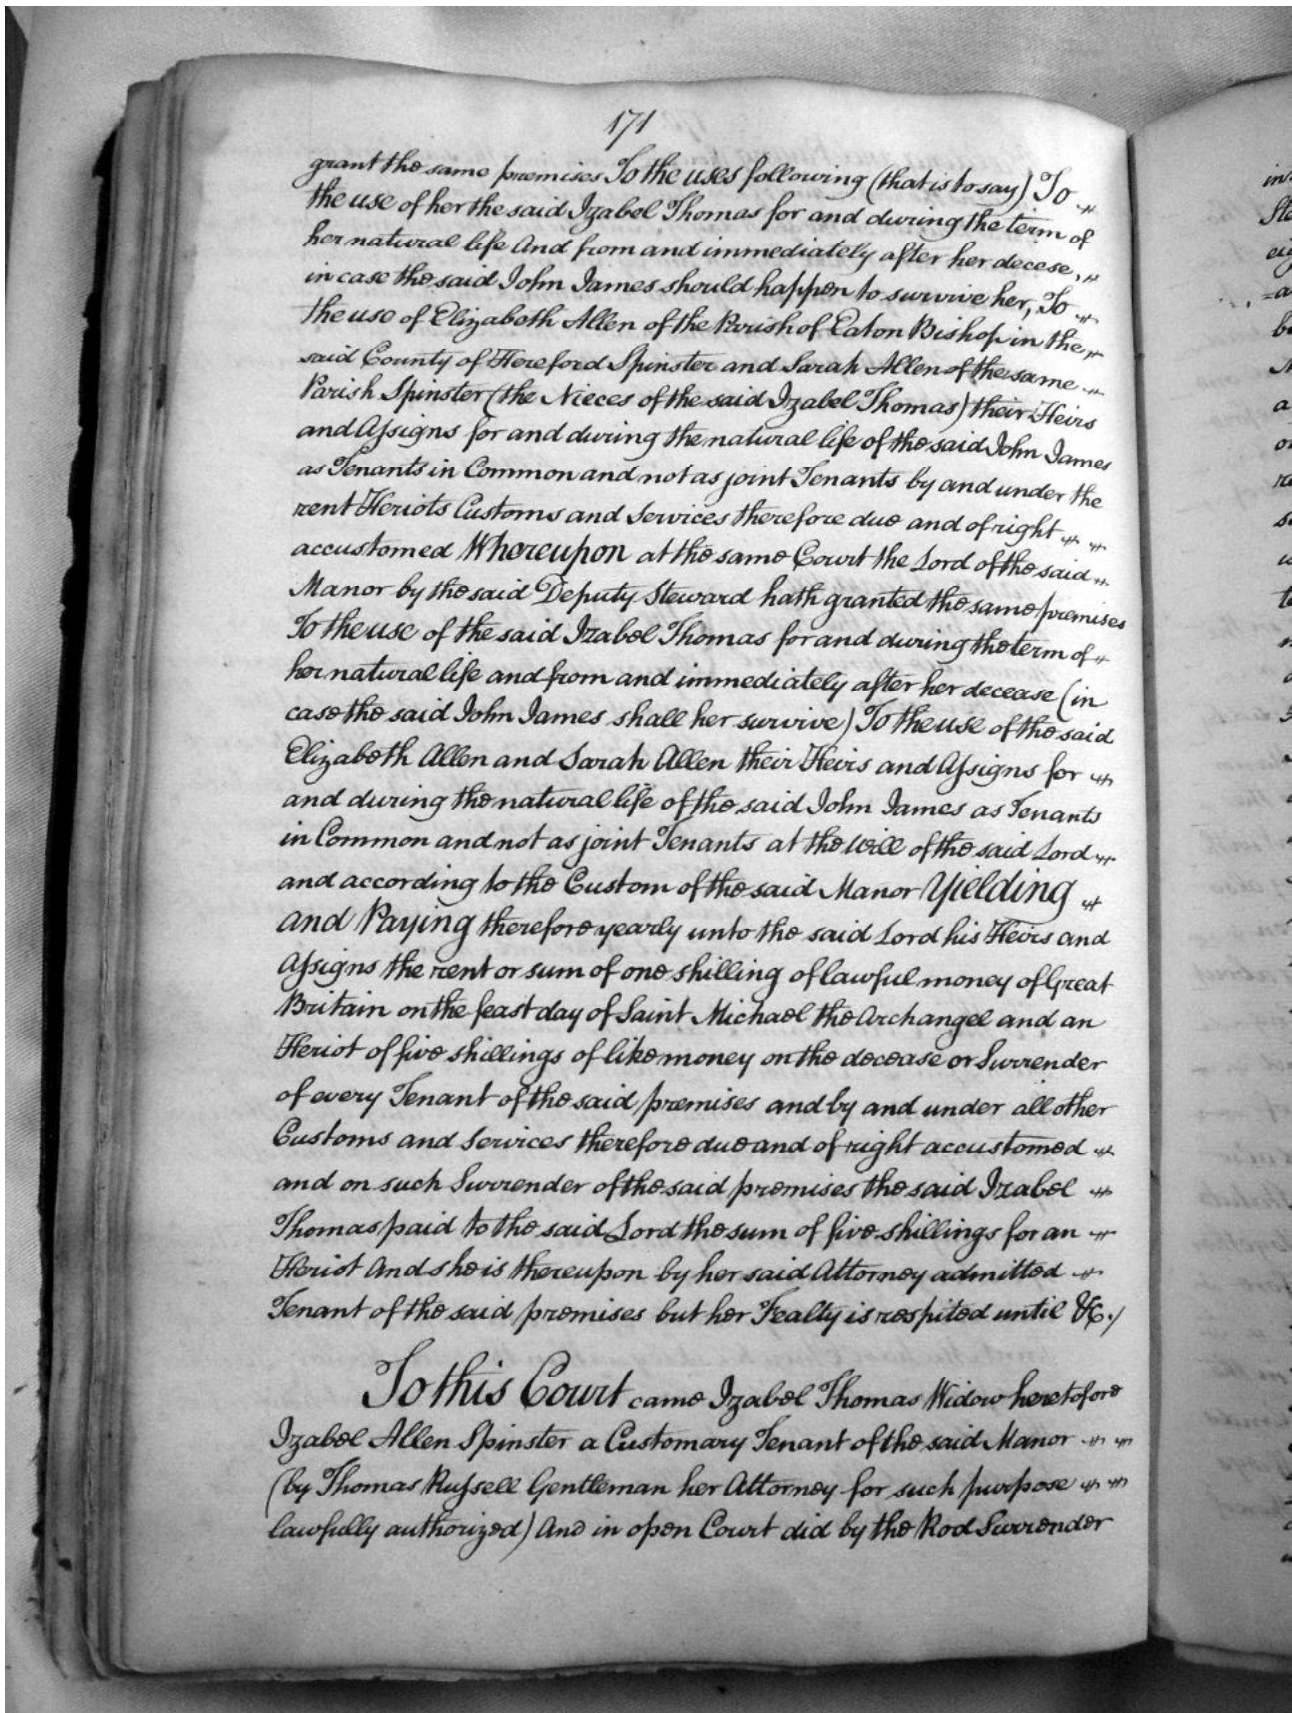 171
grant the same premises To the uses following (that is to say) To
the use of her the said Izabel Thomas for and during the term of
her natural life And from and immediately after her decese,
in case the said John James should happen to survive her, To
the use of Elizabeth Allen of the Parish of Eaton Bishop in the
said County of Hereford Spinster and Sarah Allen of the same
Parish Spinster (the Nieces of the said Izabel Thomas) their Heirs
and Assigns for and during the natural life of the said John James
as Tenants in Common and not as joint Tenants by and under the
rent Heriots Customs and Services therefore due and of right
accustomed Whereupon at the same Court the Lord of the said
Manor by the said Deputy Steward hath granted the same premises
To the use of the said Izabel Thomas for and during the term of
her natural life and from and immediately after her decease (in
case the said John James shall her survive) To the use of the said
Elizabeth Allen and Sarah Allen their Heirs and Assigns for
and during the natural life of the said John James as Tenants
in Common and not as joint Tenants at the Will of the said Lord
and according to the Custom of the said Manor Yielding
and Paying therefore yearly unto the said Lord his Heirs and
Assigns the rent or sum of one shilling of lawful money of Great
Britain on the feast day of Saint Michael the Archangel and an
Heriot of five shillings of like money on the decease or Surrender
of every Tenant of the said premises and by and under all other
Customs and Services therefore due and of right accustomed
and on such Surrender of the said premises the said Izabel
Thomas paid to the said Lord the sum of five shillings for an
Heriot And she is thereupon by her said Attorney admitted
Tenant of the said premises but her Fealty is respited until &c.)
To this Court came Izabel Thomas Widow heretofore
Izabel Allen Spinster a Customary Tenant of the said Manor
(by Thomas Russell Gentleman her Attorney for such purpose
lawfully authorized) And in open Court did by the Rod Surrender